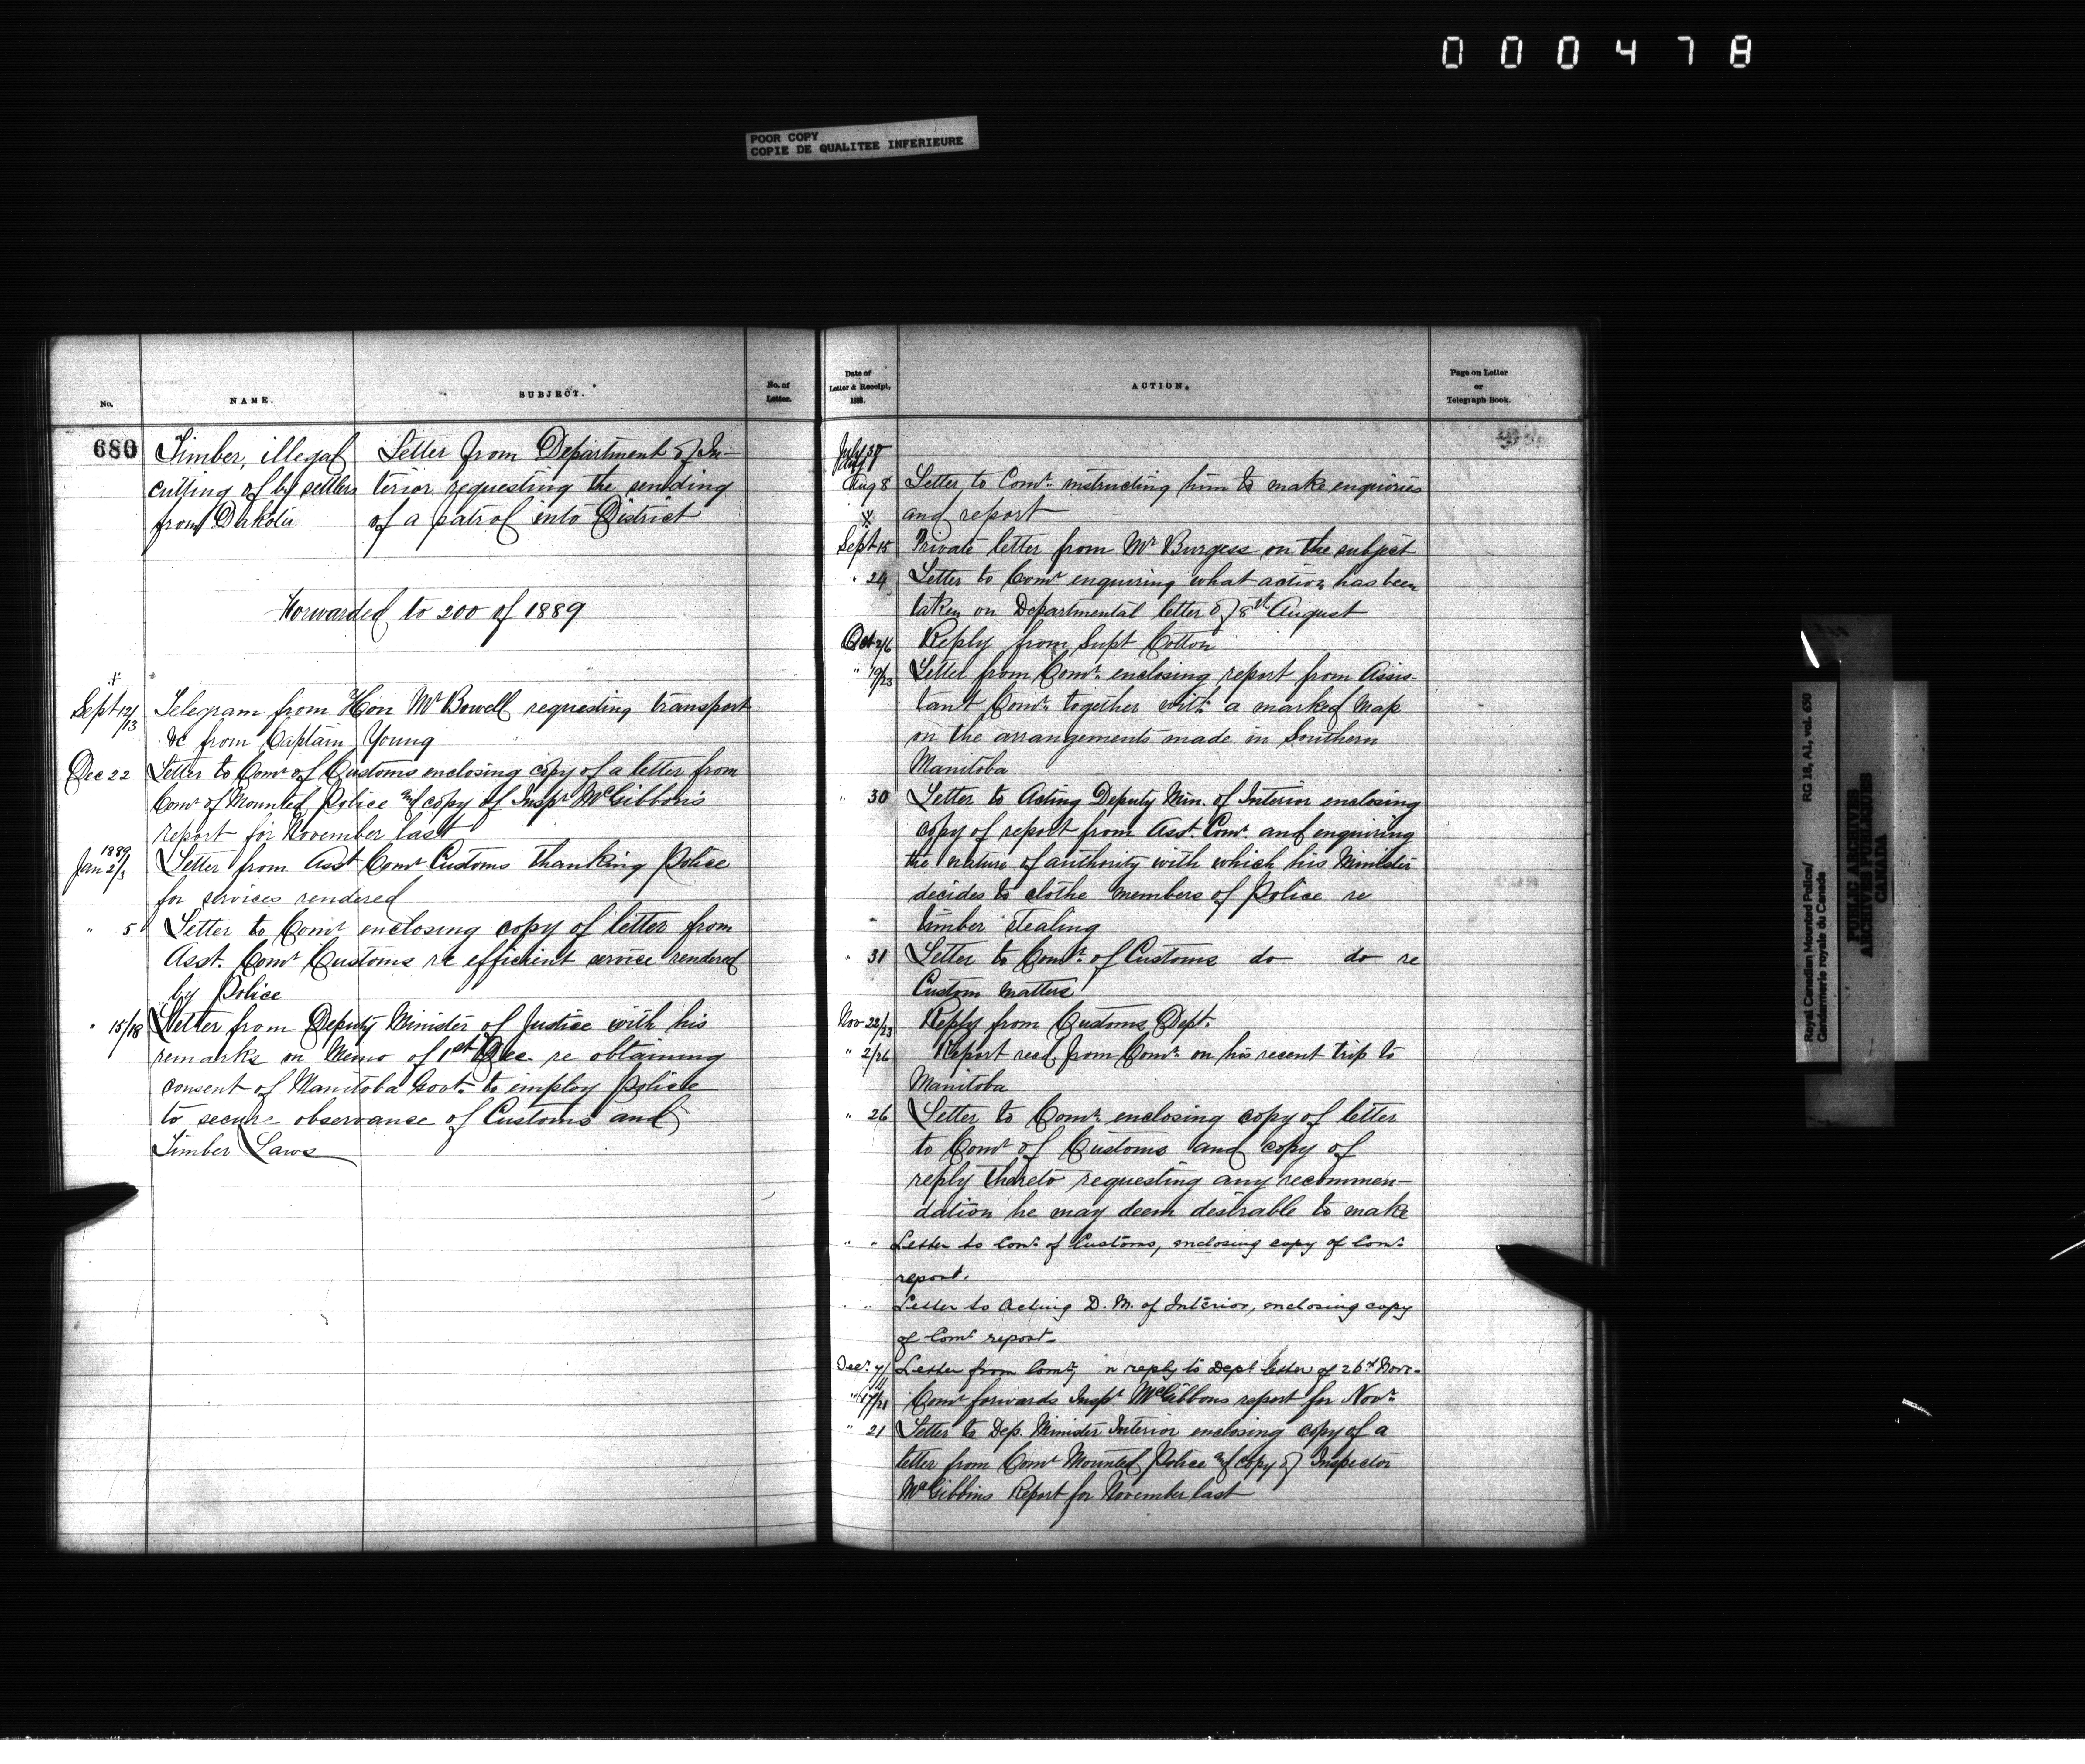 000478
POOR COPY
COPIE DE QUALITEE INFERIEURE
No.
NAME.
SUBJECT.
No. of
Letter.
680
Timber, illegal
cutting of by settlers
from Dakota
Letter from Department of In-
terior requesting the sending
of a patrol into District
Forwarded to 200 of 1889
+
Sept 12/13 Telegram from Hon Mr Bowell requesting transport
&c from Captain Young
Dec 22 Letter to Comr of Customs enclosing copy of a letter from
Comr of Mounted Police and copy of Inspr McGibbon's
report for November last
1889
Jan 2/3 Letter from Asst Comr Customs thanking Police
for services rendered
" 5 Letter to Comr enclosing copy of letter from
Asst. Comr Customs re efficient service rendered
by Police
" 15/18 Letter from Deputy Minister of Justice with his
remarks on Memo of 1st Dec. re obtaining
consent of Manitoba Govt. to employ Police
to secure observance of Customs and
Timber Laws
Date of
Letter & Receipt,
1888.
ACTION.
Page on Letter
or
Telegraph Book.
July 30
Aug 8 Letter to Comr. instructing him to make enquiries
and report
+
Sept 15 Private letter from Mr Burgess on the subject
" 24 Letter to Comr enquiring what action has been
taken on Departmental letter of 8th August
Oct 2/6 Reply from Supt Cotton
" 19/23 Letter from Comr. enclosing report from Assis-
tant Comr. together with a marked Map
on the arrangements made in Southern
Manitoba
" 30 Letter to Acting Deputy Min. of Interior enclosing
copy of report from Asst. Comr. and enquiring
the nature of authority with which his Minister
decides to clothe members of Police re
timber stealing
" 31 Letter to Comr. of Customs do do re
Custom matters
Nov 22/23 Reply from Customs Dept.
" 2/26 Report recd. from Comr. on his recent trip to
Manitoba
" 26 Letter to Comr. enclosing copy of letter
to Comr of Customs and copy of
reply thereto requesting any recommen-
dation he may deem desirable to make
" " Letter to Comr. of Customs, enclosing copy of Comr.
report.
" " Letter to Acting D. M. of Interior, enclosing copy
of Comr. report.
Decr. 7/11 Letter from Comr., in reply to Dept. letter of 26th Novr.
" 17/21 Comr forwards Inspr McGibbons report for Novr.
" 21 Letter to Dep. Minister Interior enclosing copy of a
letter from Comr Mounted Police and copy of Inspector
McGibbins Report for November last
Royal Canadian Mounted Police/
Gendarmerie royale du Canada
RG 18, A1, vol. 650
PUBLIC ARCHIVES
ARCHIVES PUBLIQUES
CANADA